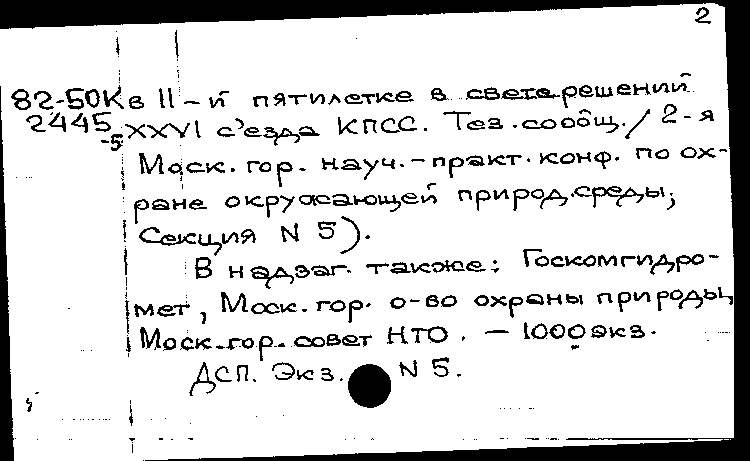 2
82-50К в 11-й пятилетке в свете решений
2445-5 XXVI с'езда КПСС. Тез. сообщ. / 2-я
Моск. гор. науч.-практ. конф. по ох-
ране окружающей природ. среды;
Секция N 5).
В надзаг. также: Госкомгидро-
мет, Моск. гор. о-во охраны природы,
Моск. гор. совет НТО. - 1000 экз.
ДСП. Экз. N 5.